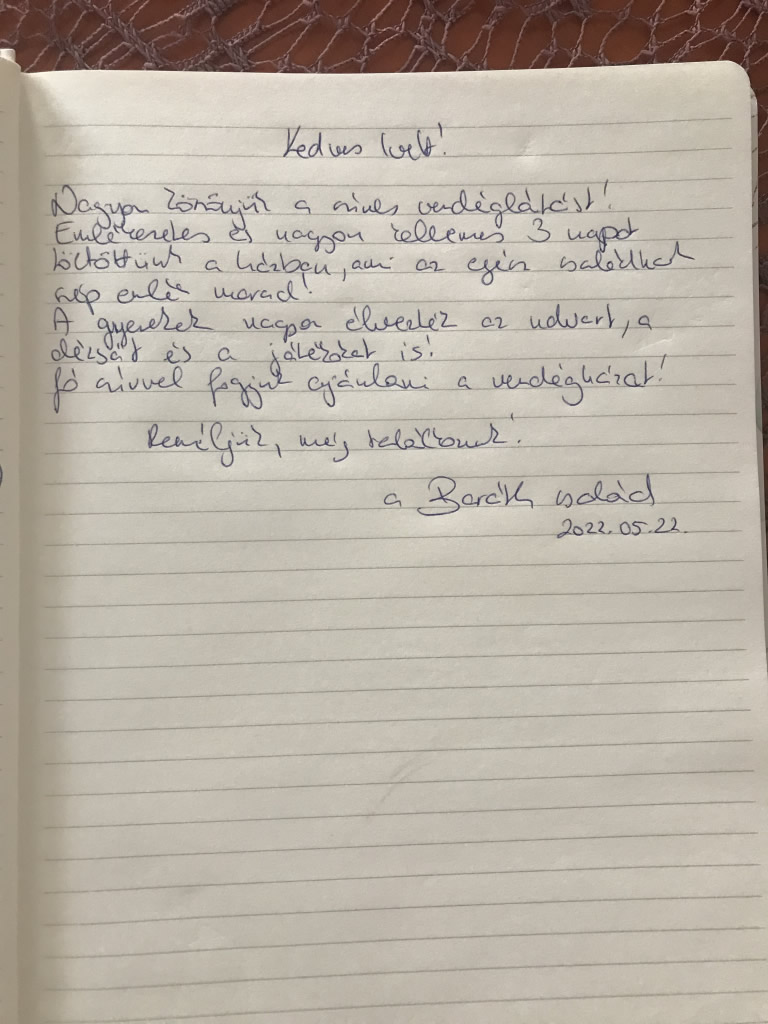 Kedves Ivett!
Nagyon köszönjük a szíves vendéglátást!
Emlékezetes és nagyon kellemes 3 napot
töltöttünk a házban, ami az egész családnak
szép emlék marad!
A gyerekek nagyon élvezték az udvart, a
dézsát és a játékokat is!
Jó szívvel fogjuk ajánlani a vendégházat!
Reméljük, még találkozunk!
a Baráth család
2022.05.22.